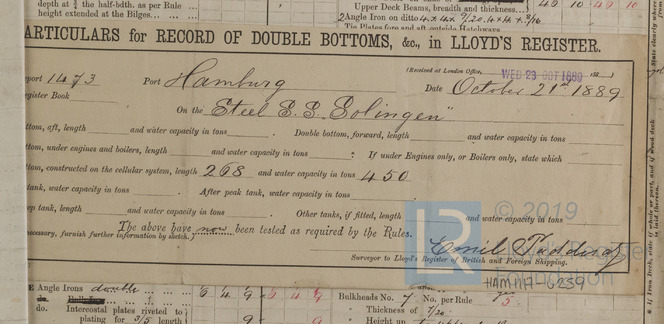 depth at ¾ the half-bdth. as per Rule ...
height extended at the Bilges...
Upper Deck Beams, breadth and thickness...)
2 Angle Iron on ditto 4 x 4 x
Tie Plates fore and aft, outside Hatchways
ARTICULARS for RECORD OF DOUBLE BOTTOMS, &c., in LLOYD'S REGISTER.
(Received at London Office, WED 23 OCT 1889 188 )
eport 1473 Port Hamburg Date October 21st 1889
egister Book
On the "Steel S. S. Solingen"
ttom, aft, length and water capacity in tons . Double bottom, forward, length and water capacity in tons
ttom, under engines and boilers, length and water capacity in tons ; If under Engines only, or Boilers only, state which
ttom, constructed on the cellular system, length 268 and water capacity in tons 450
tank, water capacity in tons . After peak tank, water capacity in tons
ep tank, length and water capacity in tons . Other tanks, if fitted, length and water capacity in tons
The above have now been tested as required by the Rules.
necessary, furnish further information by sketch.)
Emil Padderatz
Surveyor to Lloyd's Register of British and Foreign Shipping.
LR © 2019
Foundation
HAM1117-6259
E Angle Irons double
do.
do. Intercostal plates riveted to
plating for 3/5 length
6 4 9 6 4 9
9 9
Bulkheads No. 7 No. per Rule 5
Thickness of 7/20
Height up